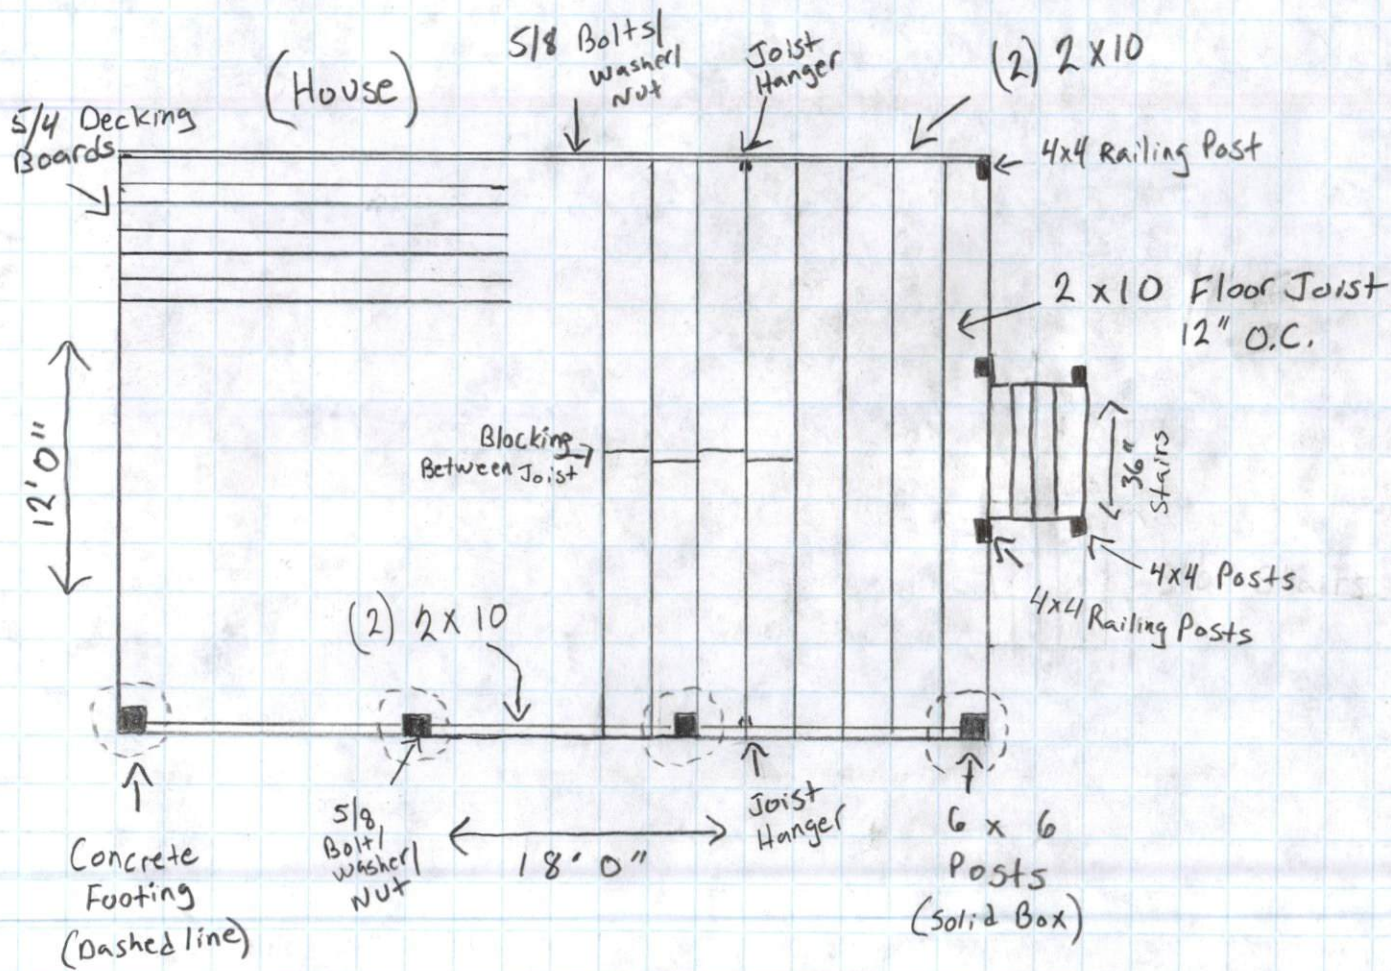 5/8 Bolts/
Washer/
Nut
Joist
Hanger
(2) 2x10
(House)
5/4 Decking
Boards
4x4 Railing Post
2 x 10 Floor Joist
12" O.C.
12'0"
Blocking
Between Joist
36"
Stairs
4x4 Posts
4x4 Railing Posts
(2) 2x10
Concrete
Footing
(Dashed line)
5/8
Bolt/
Washer/
Nut
18'0"
Joist
Hanger
6 x 6
Posts
(Solid Box)